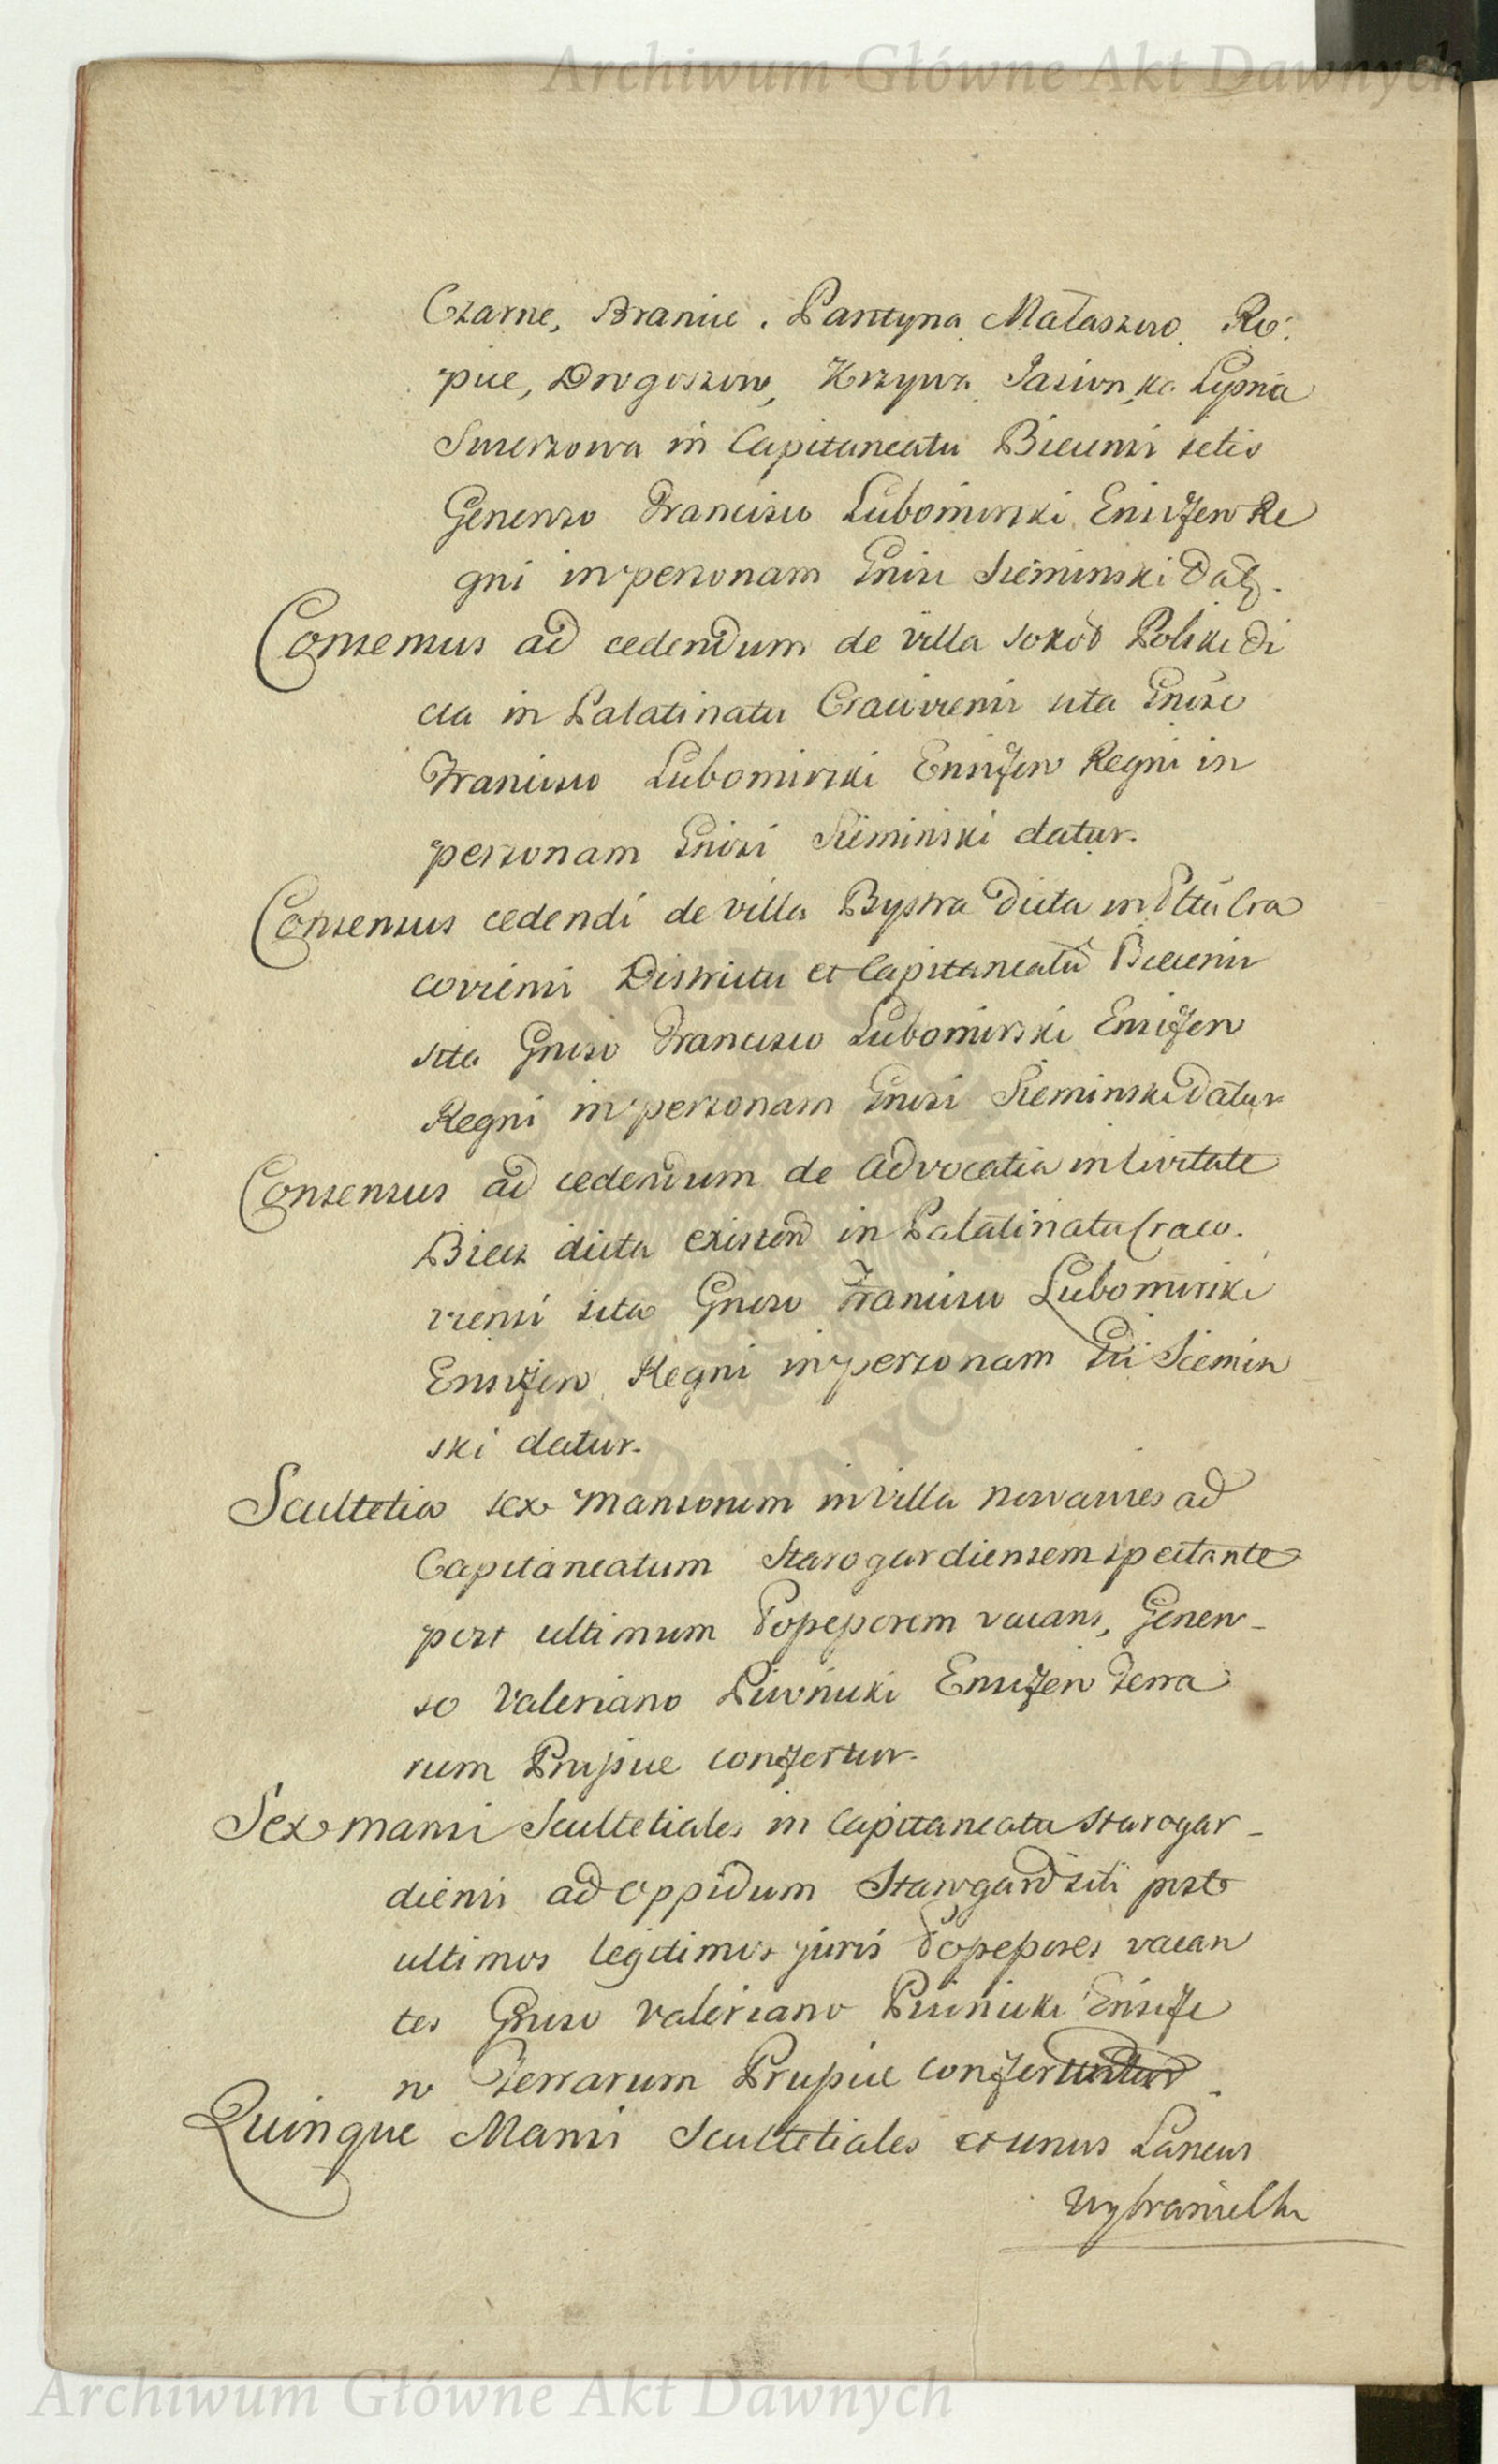 Archiwum Główne Akt Dawnych
Czarne, Branice, Pantyna Małaszow. Ro:
pice, Drogoszow, Krzywa Jasion,ka Lypna
Smerzowa in Capitaneatu Biecensi setis
Generoso Francisco Lubomirski Ensifero Re
gni in personam Gnisi Siemiński Datᷣ.
Consensus ad cedendum de villa Sokoł Polski di
cta in Palatinatu Cracoviensi sita Gniso
Francisco Lubomirski Ensifero Regni in
personam Gnisi Siemiński datur.
Consensus cedendi de villa Bystra dicta in Pttu Cra
coviensi Districtu et Capitaneatu Biecensi
sita Gniso Francisco Lubomirski Ensifero
Regni in personam Gnisi Siemiński datur
Consensus ad cedendum de advocatia in Civitate
Biecz dicta existen in Palatinatu Craco.
viensi sita Gnoso Francisco Lubomirski
Ensifero Regni in personam Gni Siemin
ski datur.
Scultetia sex mansorum in villa nowawies ad
Capitaneatum Starogardiensem spectante
post ultimum Possessorem vacans, Genero-
so Valeriano Piwnicki Ensifero Terra
rum Prussiae confertur.
Sex mansi Scultetiales in Capitaneatu Starogar-
diensi ad oppidum Starogard siti post
ultimos legitimos juris Possessores vacan
tes Gnoso Valeriano Piwnicki Ensife
ro Terrarum Prussiae conferuntur.
Quinque Mansi Scultetiales et unus Laneus
Wybraniecki
Archiwum Główne Akt Dawnych